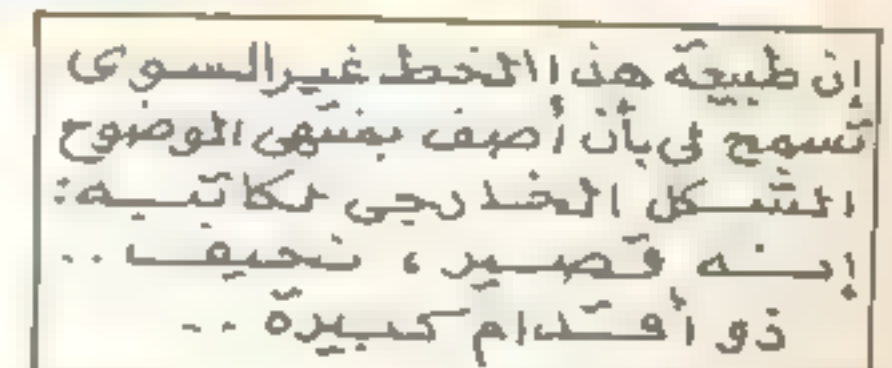 إن طبيعة هذا الخط غير السوى
تسمح لى بأن أصف بمنتهى الوضوح
الشكل الخارجى لكاتبه:
إنه قصير، نحيف ..
ذو أقدام كبيرة ..